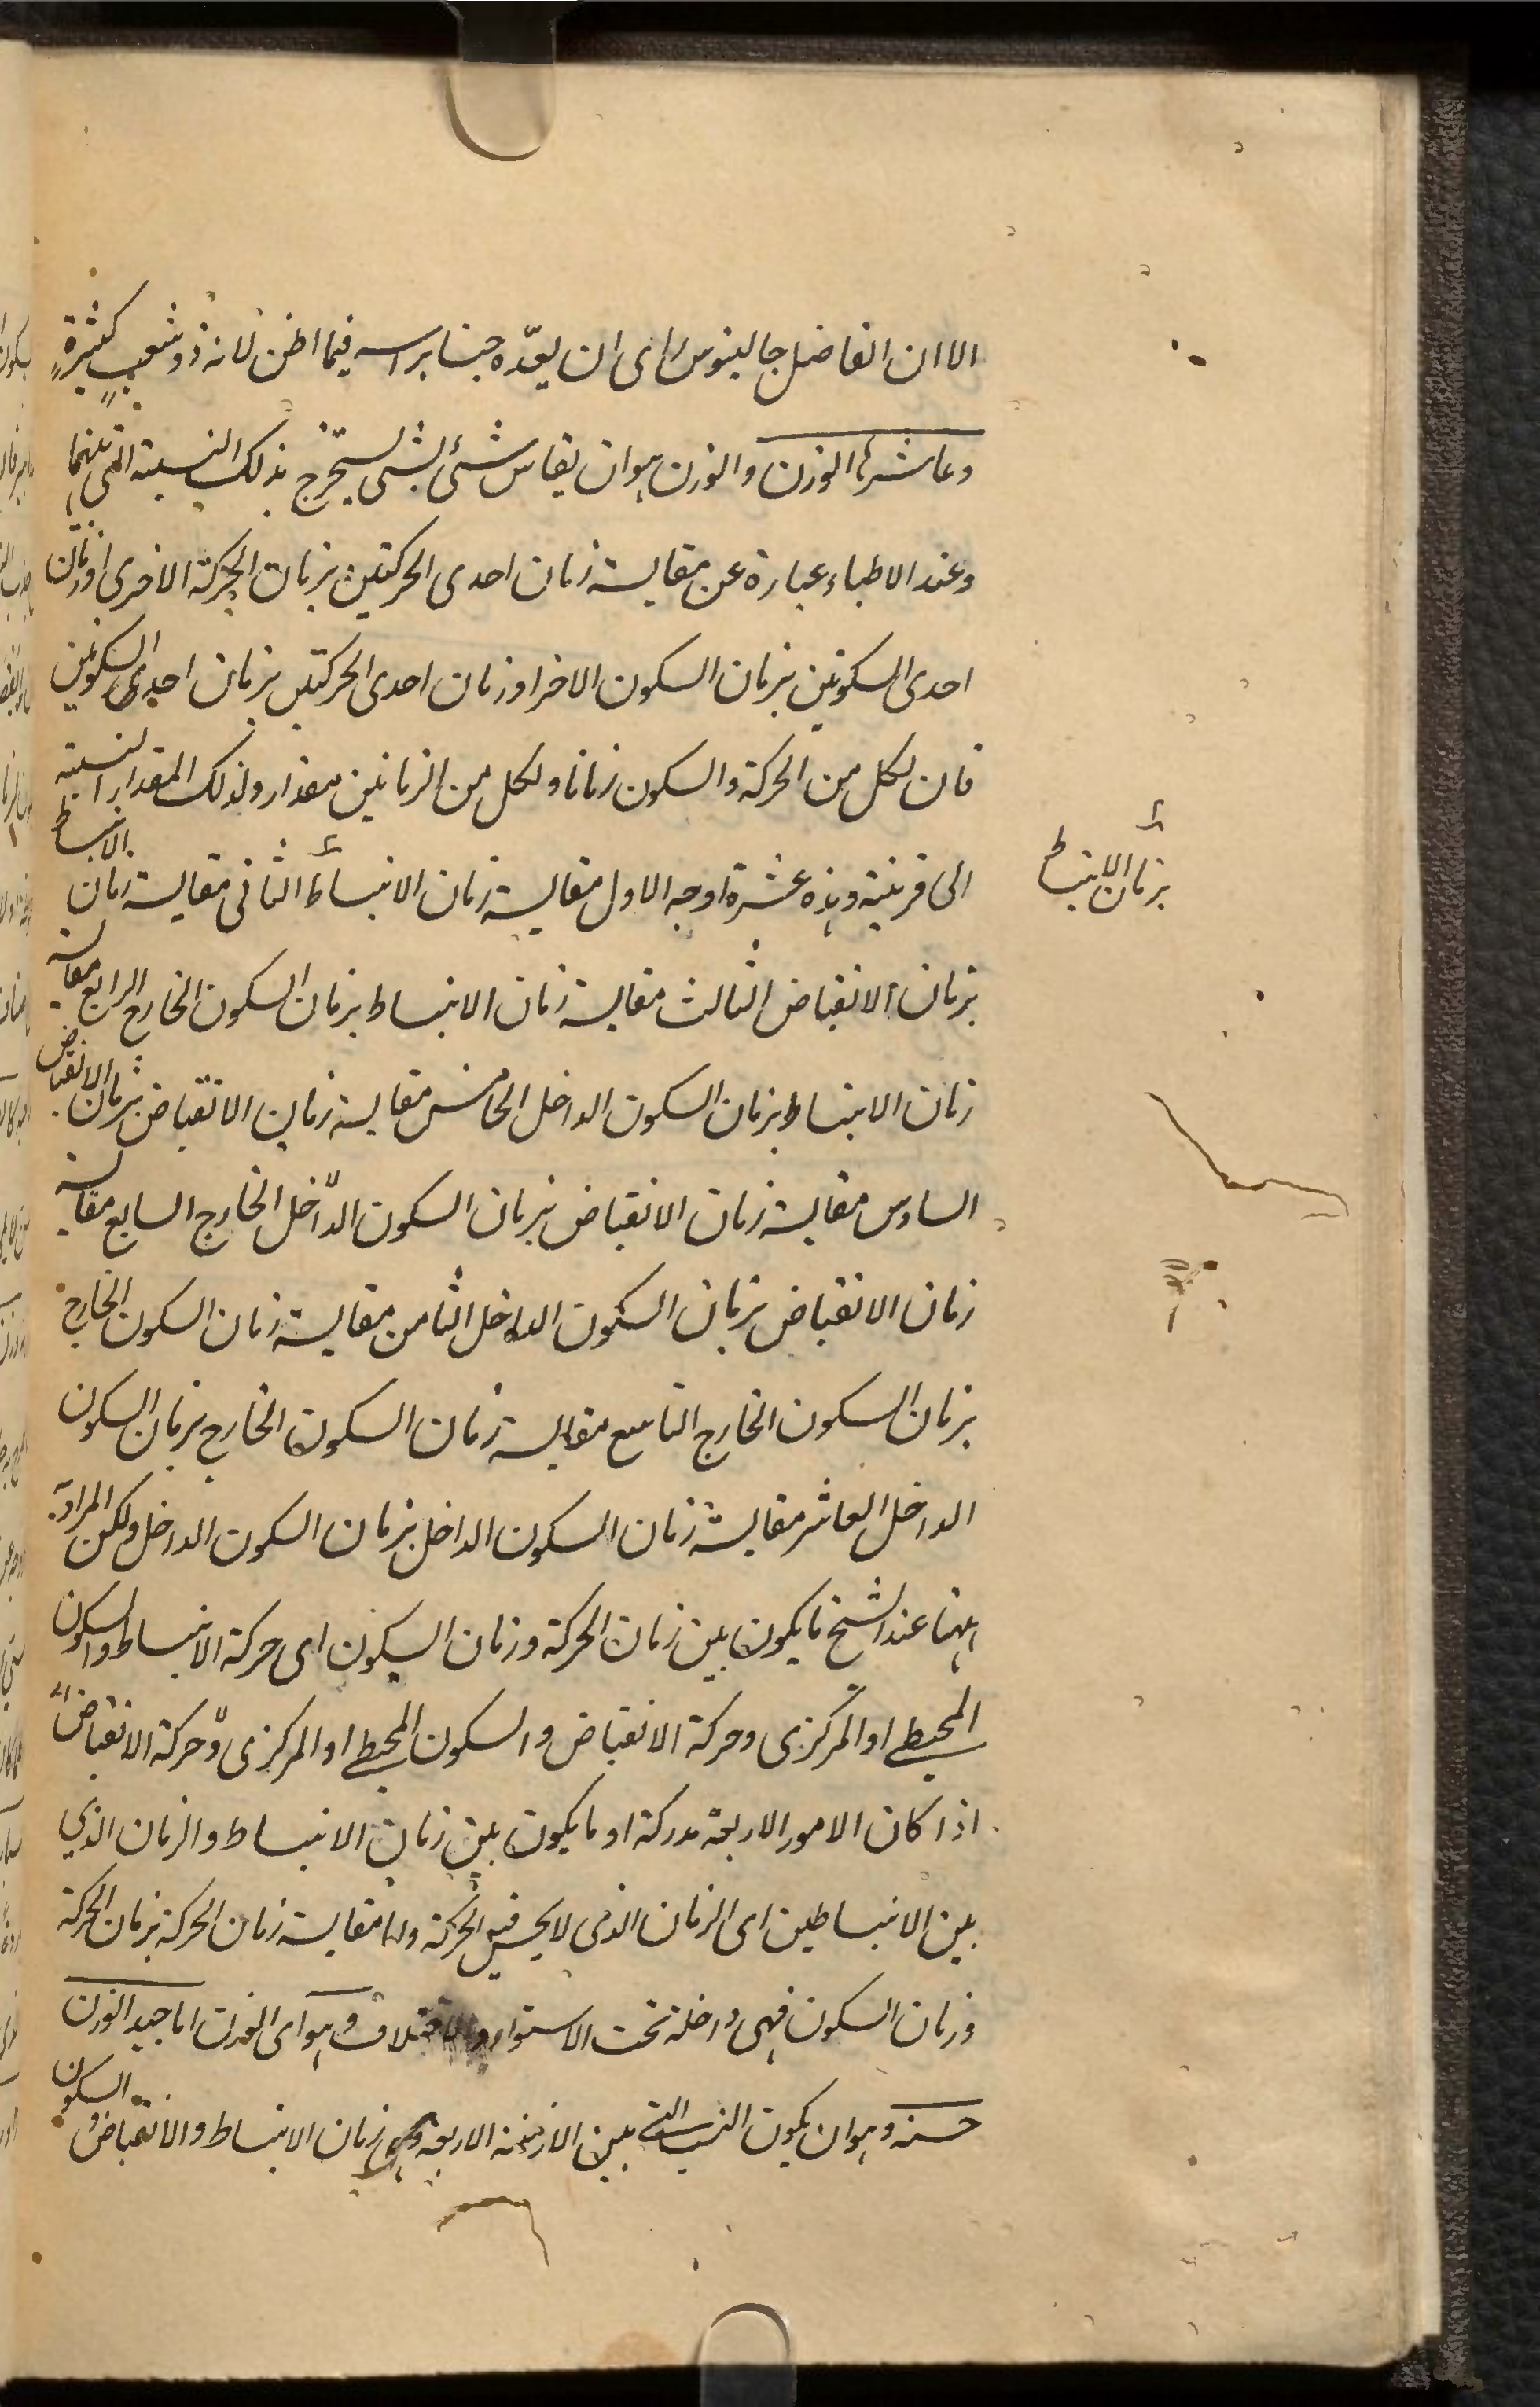 الا ان الفاضل جالينوس راى ان يعدّه جنسا براسه فيما اظن لانه ذو شعب كثيرة
وعاشرها الوزن والوزن هو ان يقاس شئ بشئ ليستخرج بذلك النسبة التى بينهما
وعند الاطباء عبارة عن مقايسة زمان احدى الحركتين بزمان الحركة الاخرى او زمان
احدى السكونين بزمان السكون الاخر او زمان احدى الحركتين بزمان احدى السكونين
فان لكل من الحركة والسكون زمانا ولكل من الزمانين مقدار ولذلك المقدار النسبة
الى قرينية وهذه عشرة اوجه الاول مقايسة زمان الانبساط الثانى مقايسة زمان الانبساط
بزمان الانبساط
بزمان الانقباض الثالث مقايسة زمان الانبساط بزمان السكون الخارج الرابع مقايسة
زمان الانبساط بزمان السكون الداخل الخامس مقايسة زمان الانقباض بزمان الانقباض
السادس مقايسة زمان الانقباض بزمان السكون الداخل الخارج السابع مقايسة
زمان الانقباض بزمان السكون الداخل الثامن مقايسة زمان السكون الخارج
بزمان السكون الخارج التاسع مقايسة زمان السكون الخارج بزمان السكون
الداخل العاشر مقايسة زمان السكون الداخل بزمان السكون الداخل ولكن المراد به
ههنا عند الشيخ ما يكون بين زمان الحركة وزمان السكون اى حركة الانبساط والسكون
المحيطى او المركزى وحركة الانقباض والسكون المحيطى او المركزى وحركة الانقباض
اذا كان الامور الاربعة مدركة او ما يكون بين زمان الانبساط والزمان الذي
بين الانبساطين اى الزمان الذى لا يحس فيه الحركة واما مقايسة زمان الحركة بزمان الحركة
وزمان السكون فهى داخلة تحت الاستواء والاختلاف وهو اى الوزن اما جيد الوزن
حسنه وهو ان يكون النسبة التى بين الازمنة الاربعة وهى زمان الانبساط والانقباض و السكون